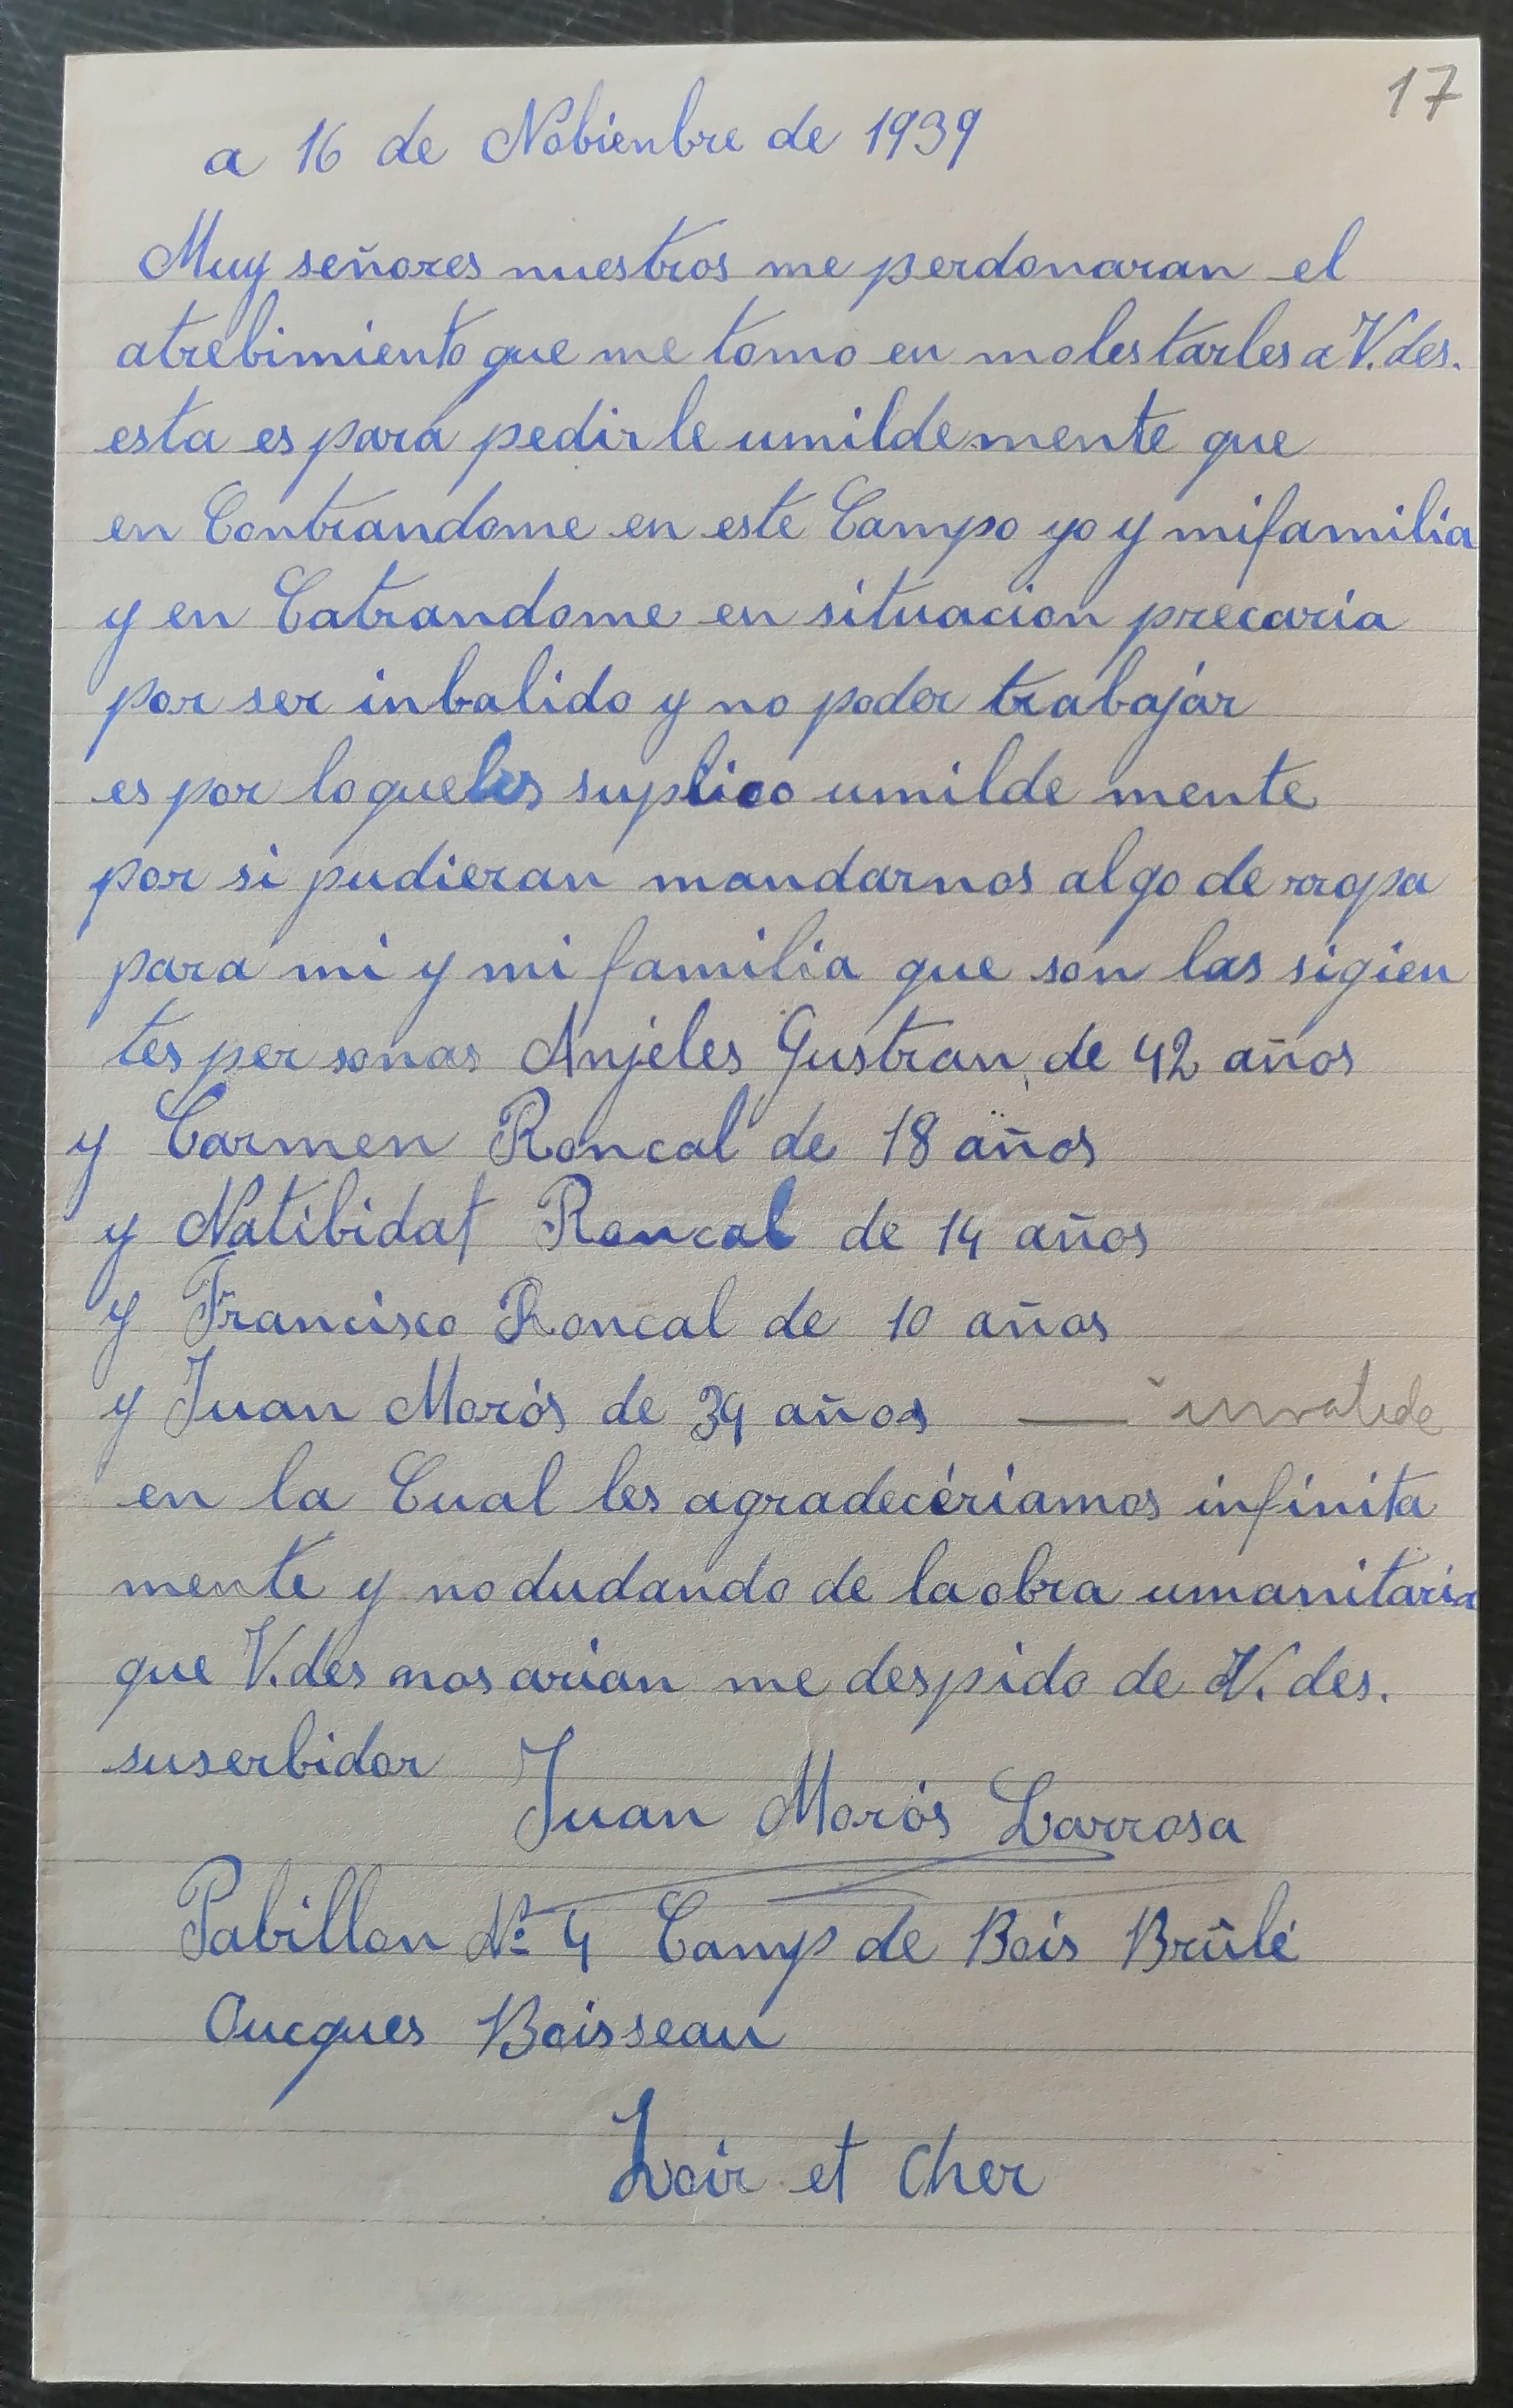 17
a 16 de Nobienbre de 1939
Muy señores nuestros me perdonaran el
atrebimiento que me tomo en molestarles a V.des.
esta es para pedirle umildemente que
en Contrandome en este Campo yo y mi familia
y en Catrandome en situacion precaria
por ser inbalido y no poder trabajar
es por lo que les suplico umilde mente
por si pudieran mandarnos algo de rropa
para mi y mi familia que son las sigien
tes per sonas Anjeles Gustran de 42 años
y Carmen Roncal de 18 años
y Natibidat Roncal de 14 años
y Francisco Roncal de 10 años
y Juan Morós de 34 años — invalide
en la Cual les agradeceriamos infinita
mente y no dudando de la obra umanitaria
que V.des nos arian me despido de V.des.
su serbidor Juan Morós Larrosa
Pabillon Nº 4 Camp de Bois Brûlé
Oucques Boisseau
Loir et Cher